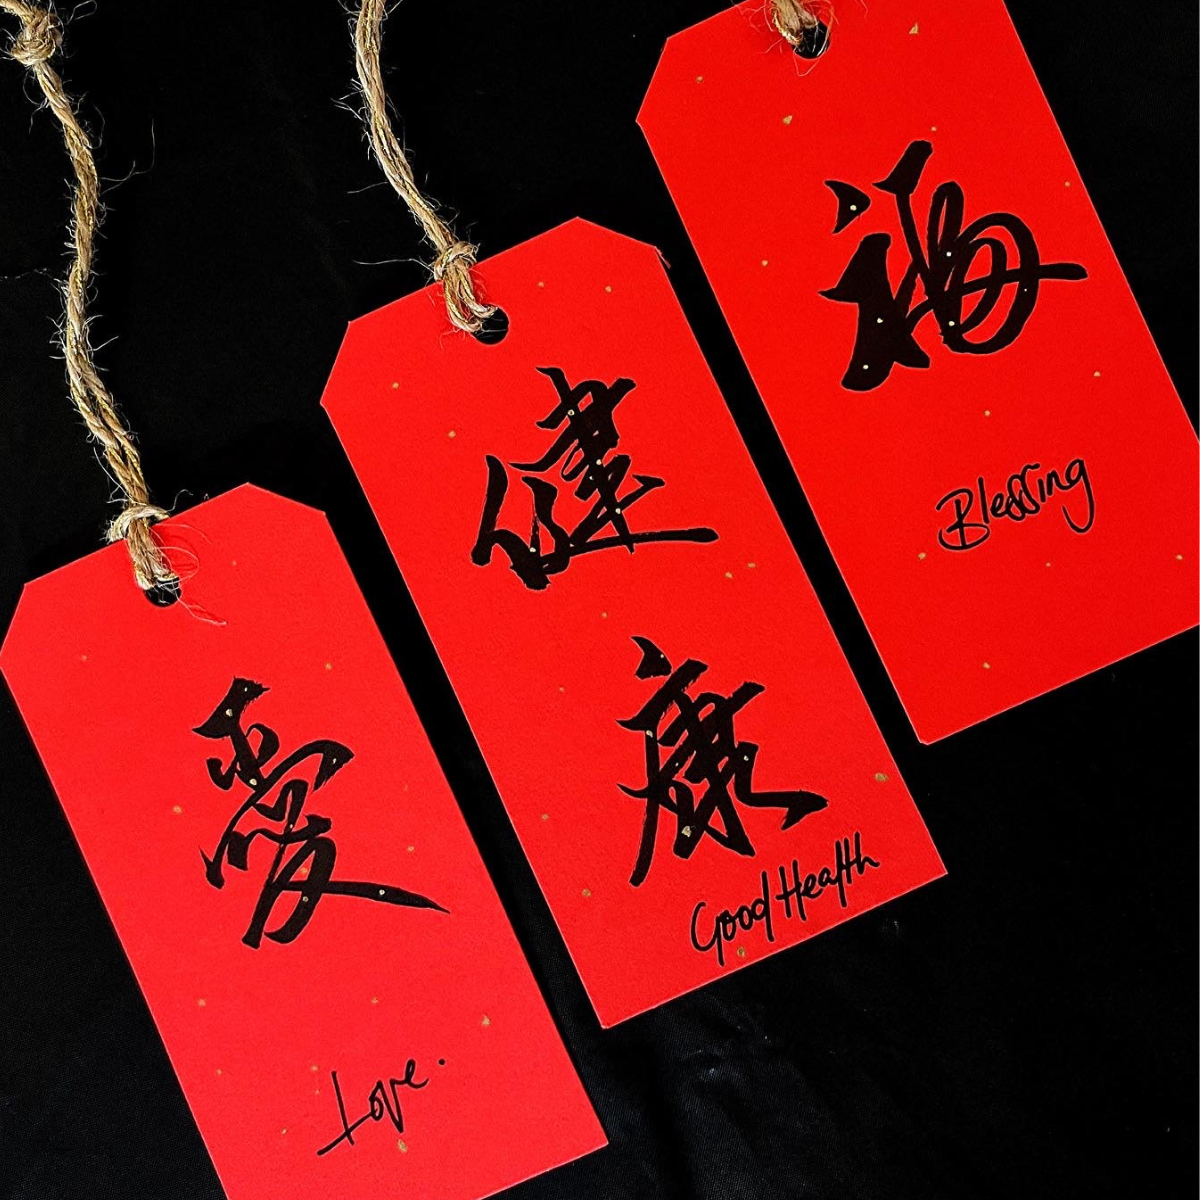 愛
Love.
健
康
Good Health
福
Blessing